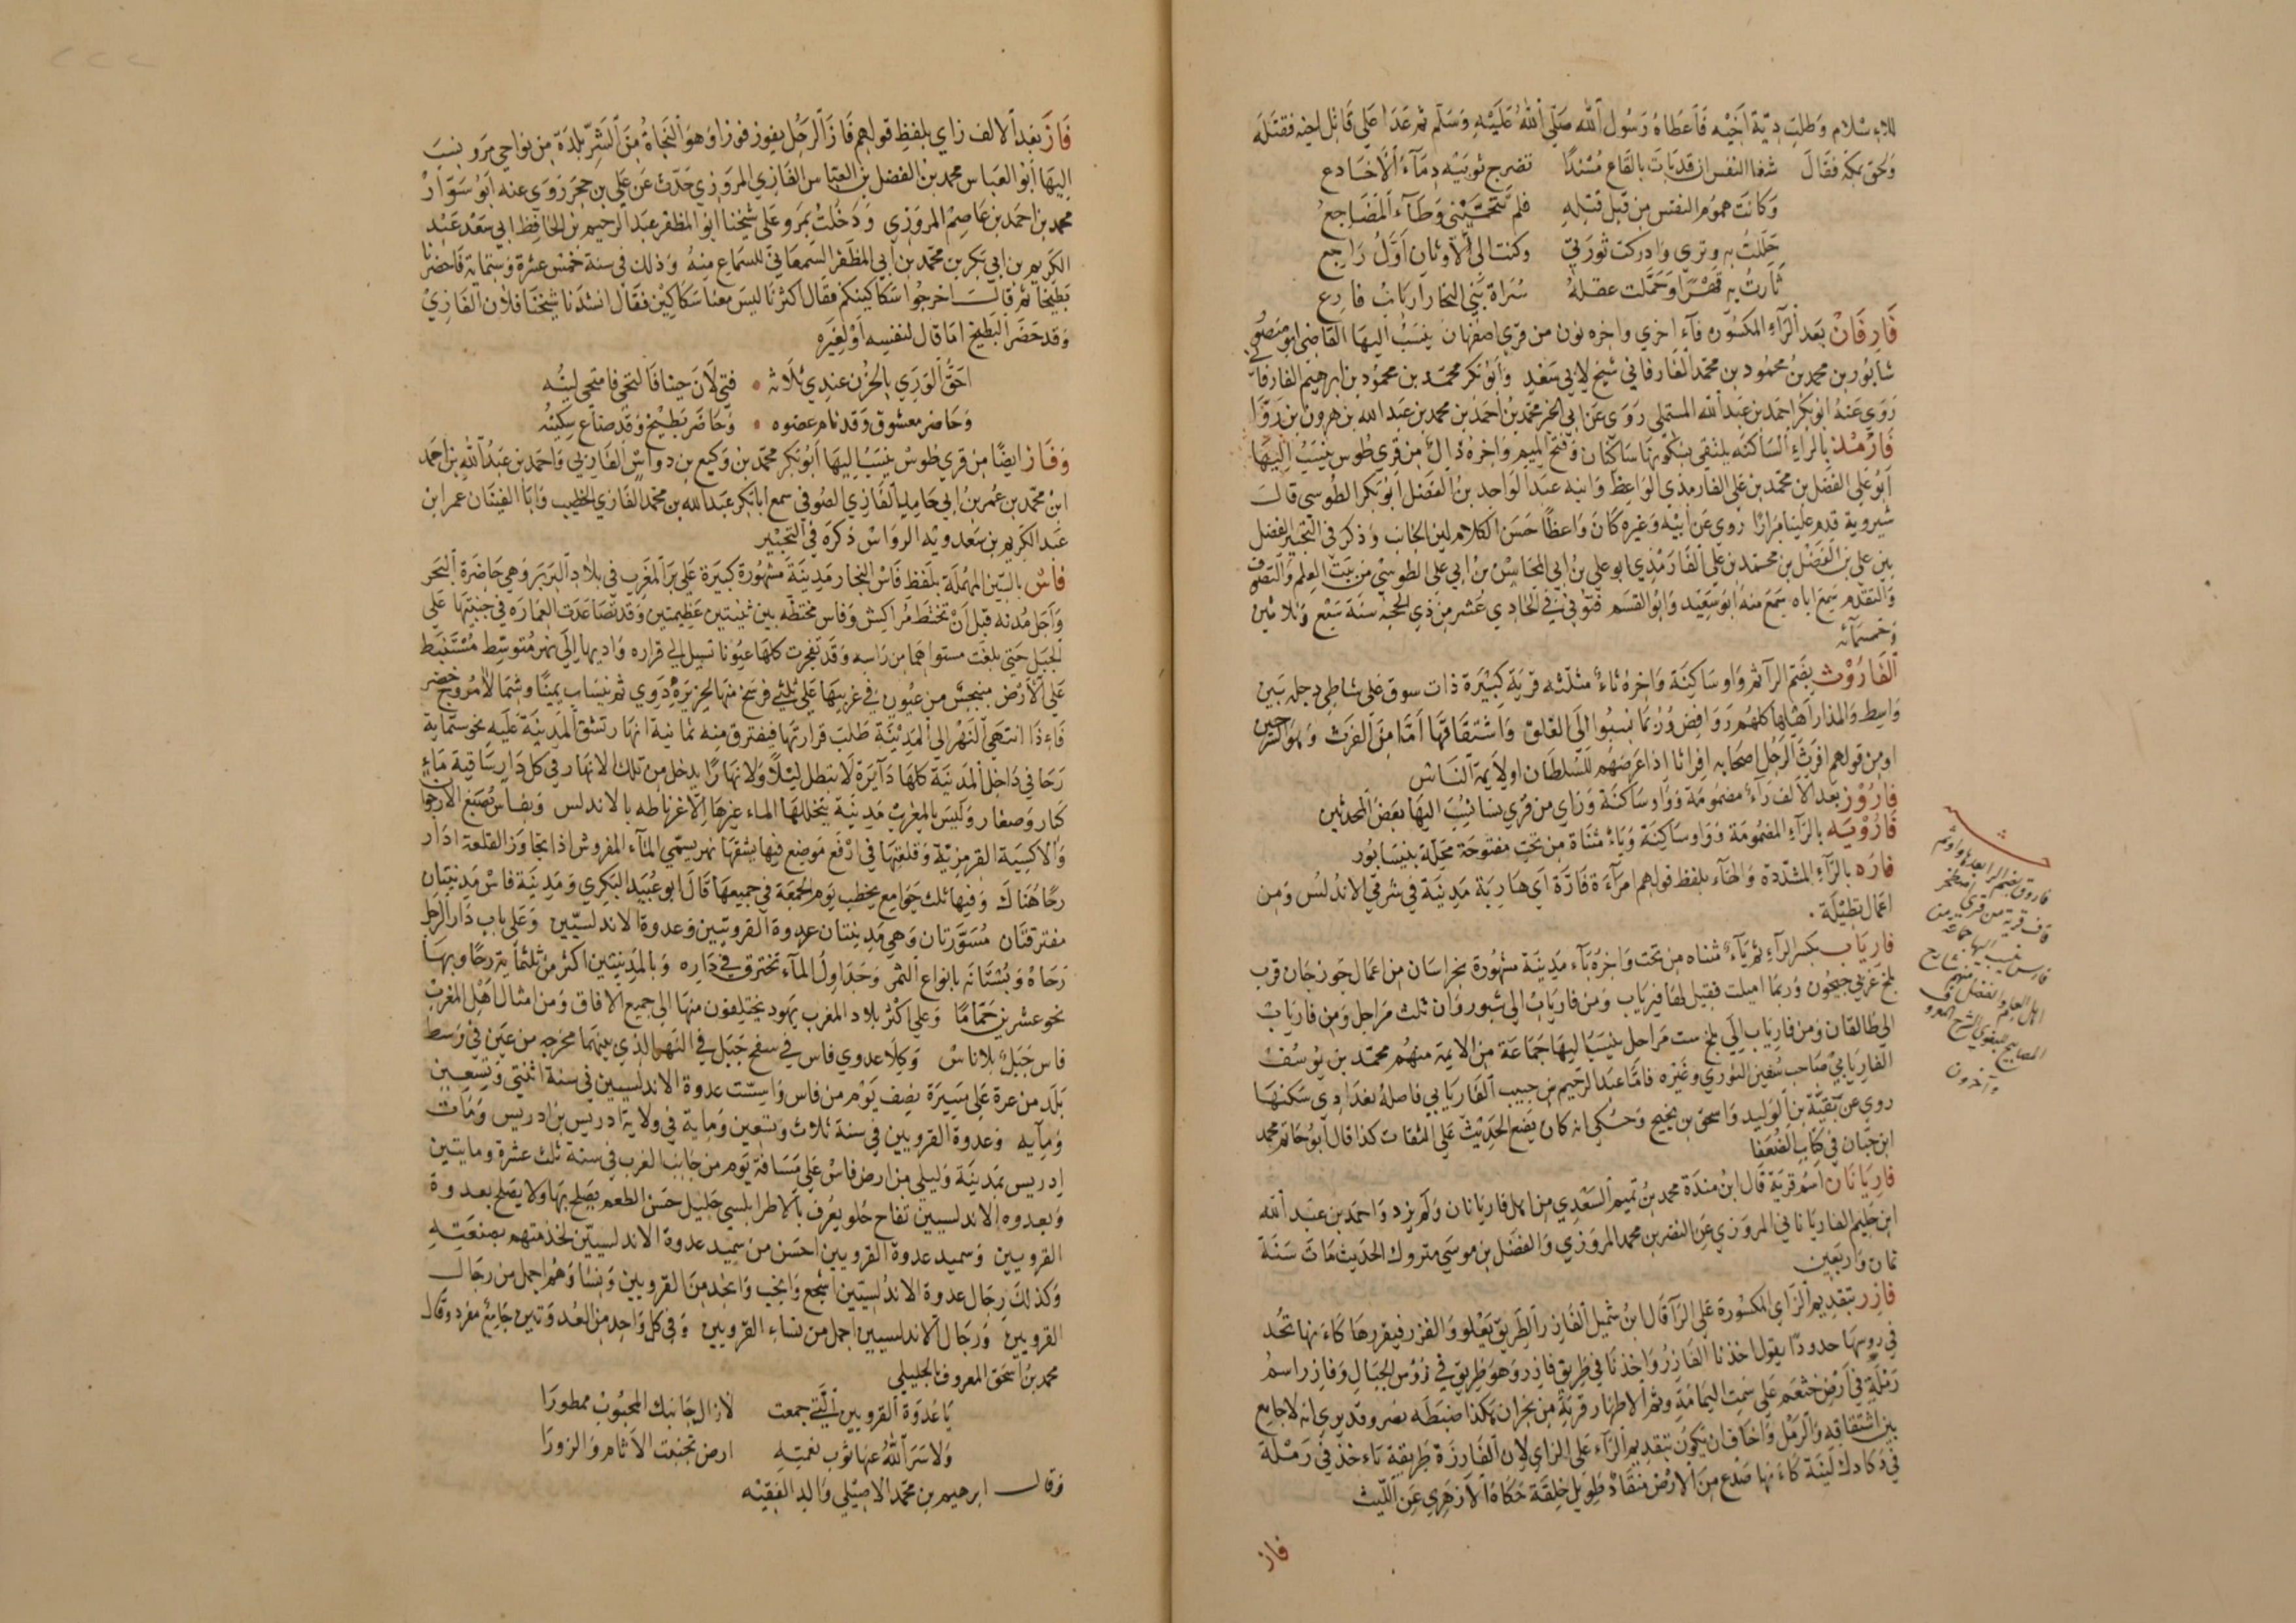 للاسلام وطلب دية اخيه فاعطاه رسول الله صلى الله عليه وسلم ثم عدا على قاتل اخيه فقتله
ولحق بمكة فقال شفا النفس ان قد بات بالقاع مسندا تضرج ثوبيه دماء الاخادع
وكانت هموم النفس من قبل قتله فلم تحميني وطاء المضاجع
حللت به وترى وادركت ثورتي وكنت الى الاوثان اول راجع
ثأرت به قهرا وحملت عقله سراة بني النجار ارباب فارع
فارفان بعد الراء المكسورة فاء اخرى واخره نون من قرى اصفهان ينسب اليها القاضي ابو منصور
شابور بن محمد بن محمود بن محمد الفارفاني شيخ لابي سعد وابو بكر محمد بن محمود بن ابرهيم الفارفاني
روى عنه ابو بكر احمد بن عبد الله المستملي روى عن ابي الخير محمد بن احمد بن محمد بن عبد الله بن هرون بن
فارمذ بالراء الساكنة يلتقي بسكونها ساكنان وفتح الميم واخره ذال من قرى طوس ينسب اليها
ابو علي الفضل بن محمد بن علي الفارمذي الواعظ وابنه عبد الواحد بن الفضل ابو بكر الطوسي قال
شيروية قدم علينا مرارا روى عن ابيه وغيره كان واعظا حسن الكلام لين الجانب وذكر في التحبير الفضل
بن علي بن الفضل بن محمد بن علي الفارمذي ابو علي بن ابي المحاسن بن ابي علي الطوسي من بيت العلم والتصوف
والتقدم سمع اباه سمع منه ابو سعيد وابو القسم فتوفي في الحادي عشر من ذي الحجة سنة سبع وثلاثين
وخمسمائه
الفاروث بضم الراء ثم واو ساكنة واخره ثاء مثلثه قرية كبيرة ذات سوق على شاطي دجلة بين
واسط والمذار اهلها كلهم روافض وربما نسبوا الى الغلق واشتقاقها اما من الفرث وهو السرجين
او من قولهم افرث الرجل اصحابه افراثا اذا عرضهم للسلطان او لايمة الناس
فاروز بعد الالف راء مضمومة وواو ساكنة وزاي من قرى نسا نسب اليها بعض المحدثين
فارويه بالراء المضمومة وواو ساكنة وياء مثناة من تحت مفتوحة محلة بنيسابور
فاره بالراء المشددة والهاء بلفظ قولهم امرآة فارة اي هاربة مدينة في شرقي الاندلس ومن
اعمال تطيلة
فارياب بكسر الراء ثم ياء مثناه من تحت واخره باء مدينة مشهورة بخراسان من اعمال جوزجان قرب
بلخ غربي جيحون وربما اميلت فقيل لها فيرياب ومن فارياب الى شبورقان ثلث مراحل ومن فارياب
الى طالقان ومن فارياب الى بلخ ست مراحل ينسب اليها جماعة من الايمة منهم محمد بن يوسف
الفاريابي صاحب سفين الثوري وغيره فاما عبد الرحيم بن حبيب الفاريابي فاصله بغدادي سكنها
روى عن بقية بن الوليد واسحق بن نجيح وحكى انه كان يضع الحديث على الثقات كذا قال ابو حاتم محمد
ابن حبان في كتاب الضعفا
فاريانان اسم قرية قال ابن مندة محمد بن تميم السعدي من اهل فاريانان ولم يزد واحمد بن عبد الله
ابن حكيم الفارياناني المروزي عن النضر بن محمد المروزي والفضل بن موسى متروك الحديث مات سنة
ثمان واربعين
فازر بتقديم الزاي المكسورة على الرا قال ابن شميل الفازر الطريق يعلو والفزر فيفزرها كانها تخد
في رؤسها حدودا يقول اخذنا الفازر واخذنا في طريق فازر وهو طريق في رؤس الجبال وفازر اسم
رملة في ارض خثعم على سمت اليمامة وثم الاطهار قرية من نجران هكذا ضبطه نصر وقد يوي انه لا جامع
بين اشتقاقه والرمل واخاف ان يكون بتقديم الراء على الزاي لان الفارزة طريقة تاخذ في رملة
في دكادك لينة كانها صدع من الارض منقاد طويل خلقة حكاه الازهري عن الليث
فاز
فاروق بضم الراء بعدها واو ثم
قاف قرية من قرى اصطخر
فارس نسب اليها جماعة من
اهل العلم والفضل منهم شارح
المصابيح للبغوي الشرح المعروف
وآخرون
فاز بعد الالف زاي بلفظ قولهم فاز الرجل يفوز فوزا وهو النجاة من الشر بلدة من نواحي مرو ينسب
اليها ابو العباس محمد بن الفضل بن العباس الفازي المروزي حدث عن علي بن حجر روى عنه ابو سوار
محمد بن احمد بن عاصم المروزي ودخلت بمرو على شيخنا ابو المظفر عبد الرحيم بن الحافظ ابي سعد عبد
الكريم بن ابي بكر بن محمد بن ابي المظفر السمعاني للسماع منه وذلك في سنة خمس عشرة وستماية فاحضرنا
بطيخا ثم قال اخرجوا سكاكينكم فقال اكثرنا ليس معنا سكاكين فقال انشدنا شيخنا فلان الفازي
وقد حضر البطيخ اما قال لنفسه او لغيره
احق الورى بالحزن عندي ثلاثه فتى لان حينا فالتحى فامتحى لينه
وحاضر معشوق وقد نام عضوه وحاضر بطيخ وقد ضاع سكينه
وفاز ايضا من قرى طوس ينسب اليها ابو بكر محمد بن وكيع بن دواس الفازي واحمد بن عبد الله بن احمد
ابن محمد بن عمر بن ابي حامد الفازي الصوفي سمع ابا بكر عبد الله بن محمد الفازي الخطيب وابا الفتيان عمر ابن
عبد الكريم بن سعدويه الرواس ذكره في التحبير
فاس بالسين المهملة بلفظ فاس النجار مدينة مشهورة كبيرة على بر المغرب في بلاد البربر وهي حاضرة البحر
واجل مدنه قبل ان تختط مراكش وفاس مختطه بين ثنيتين عظيمتين وقد تصاعدت العمارة في جنبتيها على
الجبل حتى بلغت مستواهما من راسه وقد تفجرت كلها عيونا تسيل الى قراره واديها الى نهر متوسط مستنبط
على الارض منبجس من عيون في غربيها على ثلثي فرسخ منها بجزيرة دوي ثم ينساب يمينا وشمالا في مروج خضر
فاذا انتهى النهر الى المدينة طلب قرارتها فيفترق منه ثمانية انهار تشق المدينة عليه نحو ستماية
رحا في داخل المدينة كلها دايرة لا تبطل ليلا ولا نهارا يدخل من تلك الانهار في كل دار ساقية ماء
كبار وصغار وليس بالمغرب مدينة يتخللها الماء غيرها الا غرناطه بالاندلس وبفاس تصبغ الارجوان
والاكسية القرمزية وقلعتها في ارفع موضع فيها يشقها نهر يسمى الماء المفروش اذا تجاوز القلعة ادار
رحا هناك وفيها ثلث جوامع يخطب يوم الجمعة في جميعها قال ابو عبيد البكري ومدينة فاس مدينتان
مفترقتان مسورتان وهي مدينتان عدوة القرويين وعدوة الاندلسيين وعلى باب دار الرجل
رحاه وبستانه بانواع الثمر وجداول الماء تخترق في داره وبالمدينتين اكثر من ثلثماية رحا وبها
نحو عشرين حماما وهي اكثر بلاد المغرب يهود يختلفون منها الى جميع الافاق ومن امثال اهل المغرب
فاس جبل بلا ناس وكلا عدوي فاس في سفح جبل في النهر الذي بينهما مخرجه من عين في وسط
بلد من عرة على مسيرة نصف يوم من فاس واسست عدوة الاندلسيين في سنة اثنتي وتسعين
ومايه وعدوة القرويين في سنة ثلاث وتسعين وماية في ولاية ادريس بن ادريس ومات
ادريس بمدينة وليلي من ارض فاس على مسافة يوم من جانب الغرب في سنة ثلث عشرة ومايتين
وبعدوه الاندلسيين تفاح حلو يعرف بالاطرابلسي جليل حسن الطعم يصلح بها ولا يصلح بعدوة
القرويين وسميد عدوة القرويين احسن من سميد عدوة الاندلسيين لحذقهم بصنعته
وكذلك رجال عدوة الاندلسيين اشجع وانجب وانجد من القرويين ونساؤهم اجمل من رجال
القرويين ورجال الاندلسيين اجمل من نساء القرويين وفي كل واحد من العدوتين جامع مفرد وقال
محمد بن اسحق المعروف بالجليلي
يا عدوة القرويين التي جمعت لا زال جانبك المحبوب ممطورا
ولا سر الله عنها ثوب نعمته ارض تجنبت الاثام والزورا
وقال ابرهيم بن محمد الاصيلي والد الفقيه